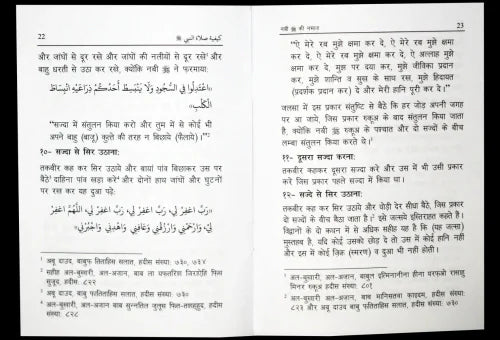 22
كيفية صلاة النبي ﷺ
और जांघों से दूर रखे और जांघों की नलीयों से दूर रखे¹ और
बाहु धरती से उठा कर रखे, क्योंकि नबी ﷺ ने फ़रमाया:
«اعْتَدِلُوا فِي السُّجُودِ وَلَا يَنْبَسِطْ أَحَدُكُمْ ذِرَاعَيْهِ انْبِسَاطَ
الْكَلْبِ»
"सज्दा में संतुलन किया करो और तुम में से कोई भी
अपने बाहु (बाजू) कुत्ते की तरह न बिछाये (फैलाये)।"²
१०- सज्दा से सिर उठाना:
तकबीर कह कर सिर उठाये और बायां पांव बिछाकर उस पर
बैठे³ दाहिना पांव खड़ा करे⁴ और दोनों हाथ जांघों और घुटनों
पर रख कर यह दुआ पढ़े:
«رَبِّ اغْفِرْ لِي، رَبِّ اغْفِرْ لِي، رَبِّ اغْفِرْ لِي، اللَّهُمَّ اغْفِرْ
لِي، وَارْحَمْنِي وَارْزُقْنِي وَعَافِنِي وَاهْدِنِي وَاجْبُرْنِي»
¹ अबू दाउद, बाबुफ़ तितािहिस सलात, हदीस संख्या: ७३०, ७३४
² सहीह अल-बुख़ारी, अल-अजान, बाब ला यफतरिश जिराऐहि फिस
सुजूद, हदीस: ८२२
³ अबू दाउद, बाबु फतितािहिस सलात, हदीस संख्या: ७३०
⁴ अल-बुख़ारी, अल-अजान बाब सुन्नतिल जुलूस फित-तशह्हुद, हदीस
संख्या: ८२८
नबी ﷺ की नमाज़
23
"ऐ मेरे रब मुझे क्षमा कर दे, ऐ मेरे रब मुझे क्षमा
कर दे, ऐ मेरे रब मुझे क्षमा कर दे, ऐ अल्लाह मुझे
क्षमा कर दे, मुझ पर दया कर, मुझे जीविका प्रदान
कर, मुझे शान्ति व सुख के साथ रख, मुझे हिदायत
(प्रदर्शक प्रदान कर) दे और मेरी हानि पूरी कर दे।"
जलसा में इस प्रकार संतुष्टि से बैठे कि हर जोड़ अपनी जगह
पर आ जाये, जिस प्रकार रूकूअ के बाद संतुलन किया जाता
है, क्योंकि नबी ﷺ रूकूअ के पश्चात और दो सज्दों के बीच
लम्बा संतुलन किया करते थे।¹
११- दूसरा सज्दा करना:
तकबीर कहकर दूसरा सज्दा करे और उस में भी उसी प्रकार
करे जिस प्रकार पहले सज्दा में किया था।
१२- सज्दे से सिर उठाना:
तकबीर कह कर सिर उठाये और थोड़ी देर सीधा बैठे, जिस प्रकार
दो सज्दों के बीच बैठा जाता है।² इसे जल्सये इस्तिराहत कहते हैं।
विद्वानों के दो कथन में से अधिक सहीह यह है कि (यह जल्सा)
मुस्तहब है, यदि कोई उसको छोड़ दे तो उस में कोई हानि नहीं
और इस में कोई ज़िक्र (स्मरण) व दुआ भी नहीं होती।
¹ अल-बुख़ारी, अल-अजान, बाबुल इतमिनानीना हीना यरफ़ओ रासहु
मिनर रूकूअ हदीस संख्या: ८०१
² अल-बुख़ारी, अल-अजान, बाब मानिसतवा काइदम, हदीस संख्या:
८२३ और अबू दाउद, बाबु फतितािहिस सलात, हदीस संख्या ७३०